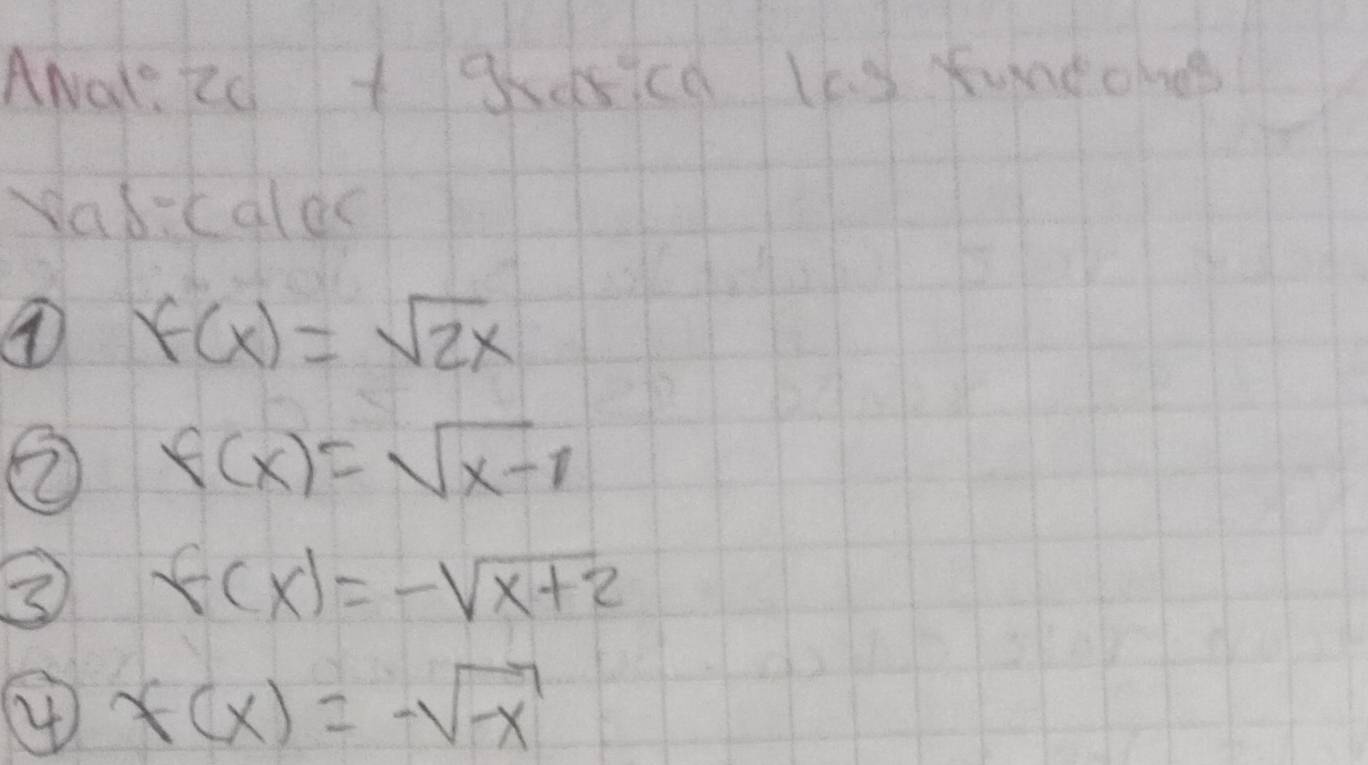 Analiza y grafica las funciones
radicales
① f(x) = √2x
② f(x) = √x-1
③ f(x) = -√x+2
④ f(x) = -√-x